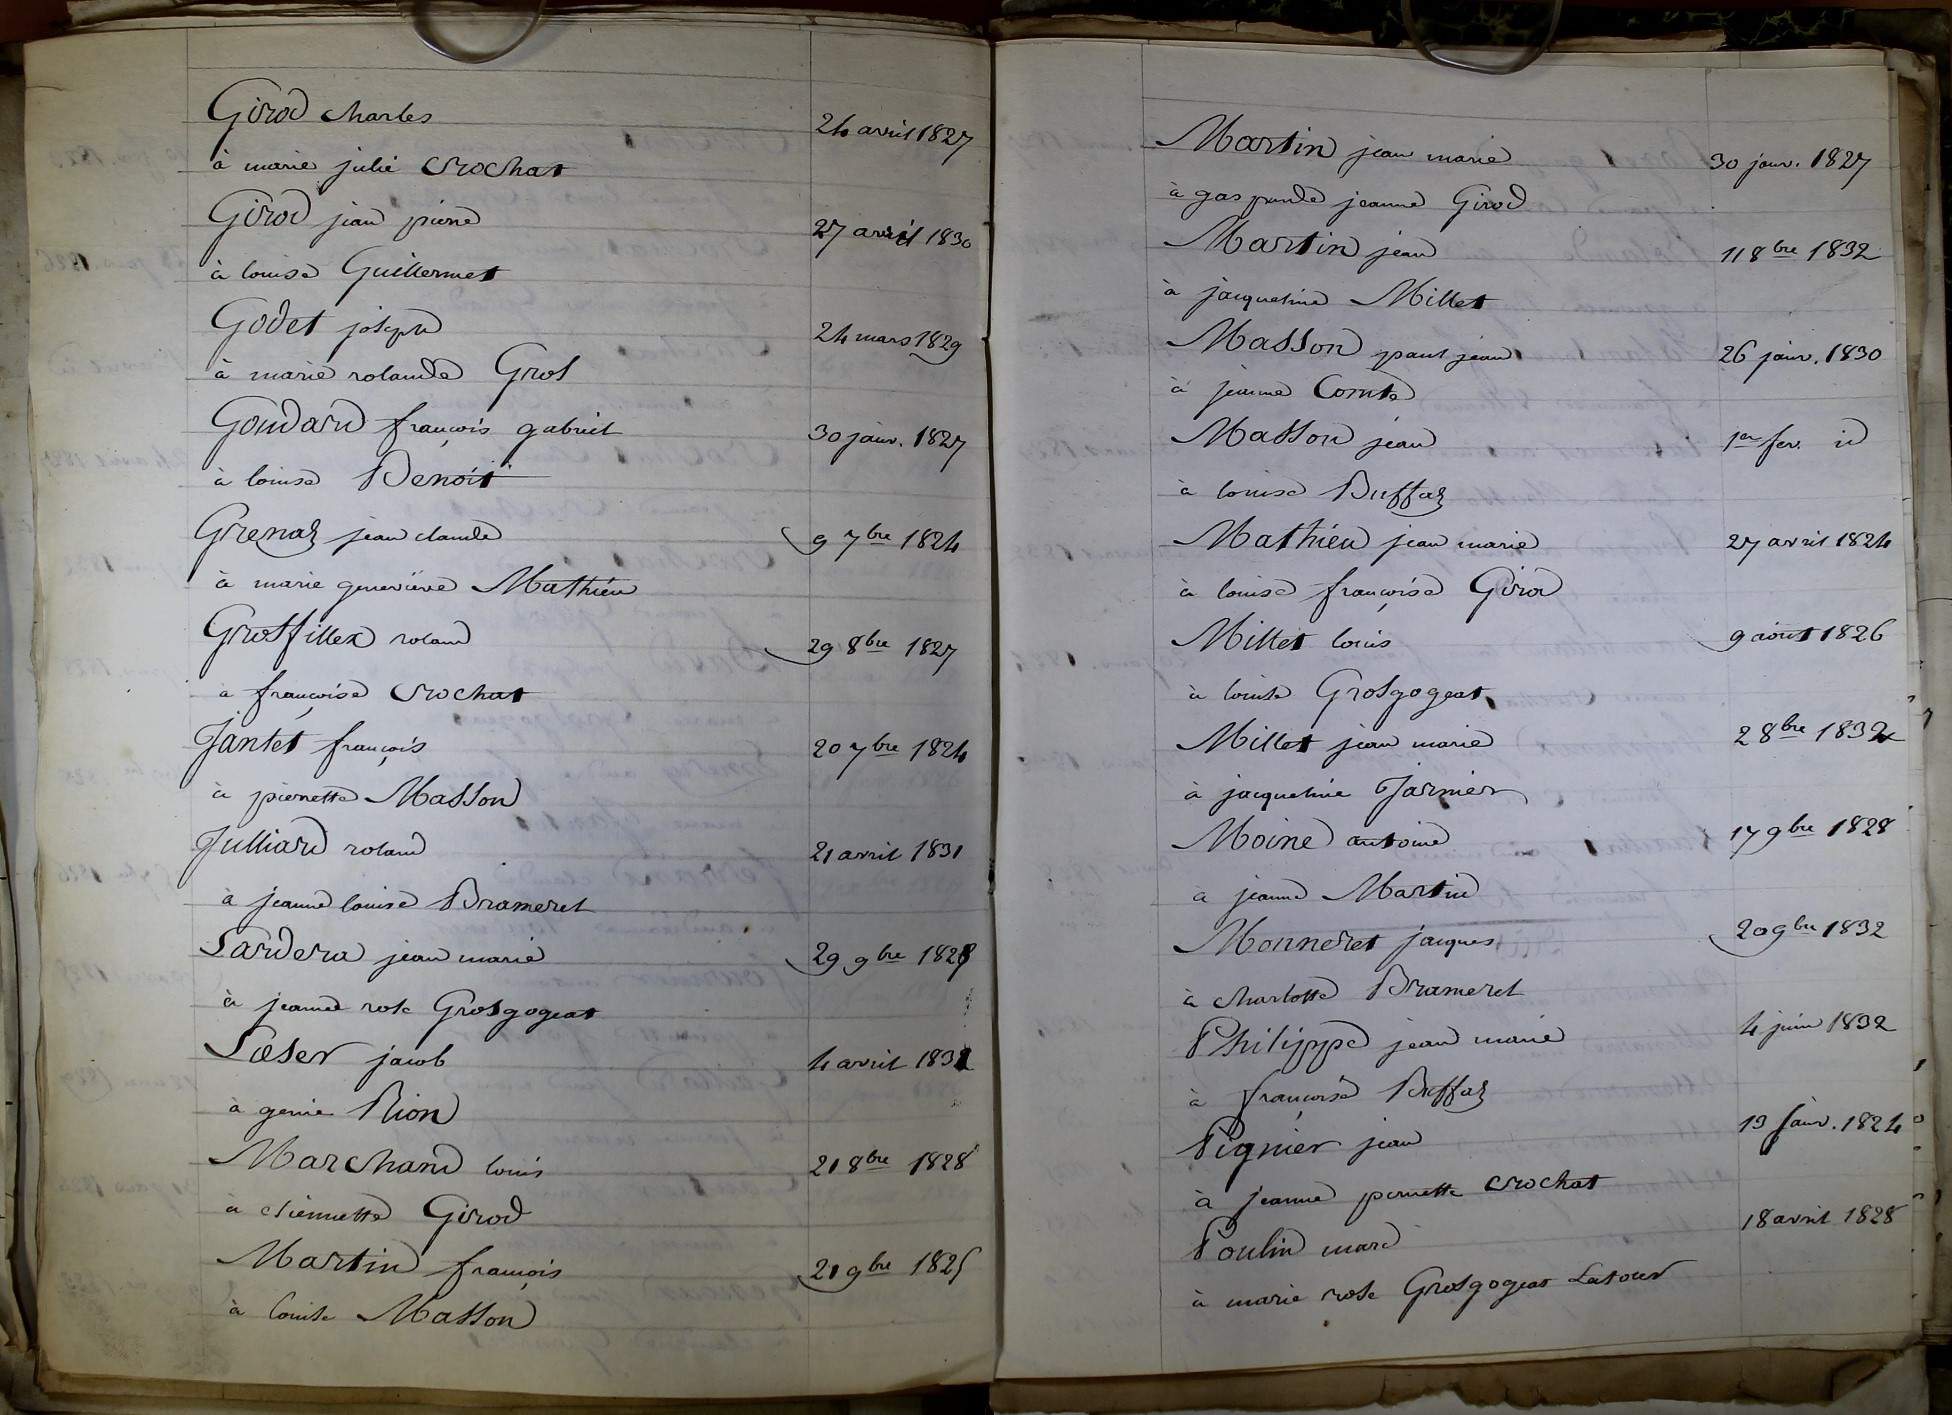 Girod charles 24 avril 1827
à marie julie crochat
Girod jean pierre 27 avril 1830
à louise Guillermet
Godet joseph 24 mars 1829
à marie rolande Gros
Goudard françois gabriel 30 janv. 1827
à louise Benoit
Grenaz jean claude 9 7bre 1824
à marie geneviève Mathieu
Grosfillex roland 29 8bre 1827
à françoise crochat
Jantet françois 20 7bre 1824
à pierrette Masson
Julliard roland 21 avril 1831
à jeanne louise Brameret
Lardera jean marie 29 9bre 1828
à jeanne rose Grosgogeat
Loeser jacob 4 avril 1831
à genie Rion
Marchand louis 21 8bre 1828
à etiennette Girod
Martin françois 21 9bre 1825
à louise Masson
Martin jean marie 30 janv. 1827
à gasparde jeanne Girod
Martin jean 11 8bre 1832
à jacqueline Millet
Masson paul jean 26 janv. 1830
à jeanne Comte
Masson jean 1er fev. id
à louise Buffaz
Mathieu jean marie 27 avril 1824
à louise françoise Girod
Millet louis 9 aout 1826
à louise Grosgogeat
Millet jean marie 2 8bre 1832
à jacqueline Jarnier
Moine antoine 17 9bre 1828
à jeanne Martin
Monneret jacques 20 9bre 1832
à charlotte Brameret
Philippe jean marie 4 juin 1832
à françoise Buffaz
Pignier jean 13 janv. 1824
à jeanne pernette crochat
Poulin marc 18 avril 1828
à marie rose Grosgogeat Latour